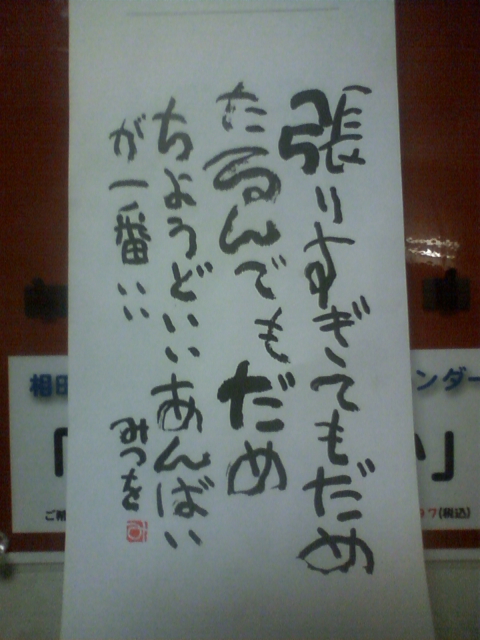 張りすぎてもだめ
たるんでもだめ
ちょうどいいあんばい
が一番いい
みつを
相田
ンダー
」
(税込)